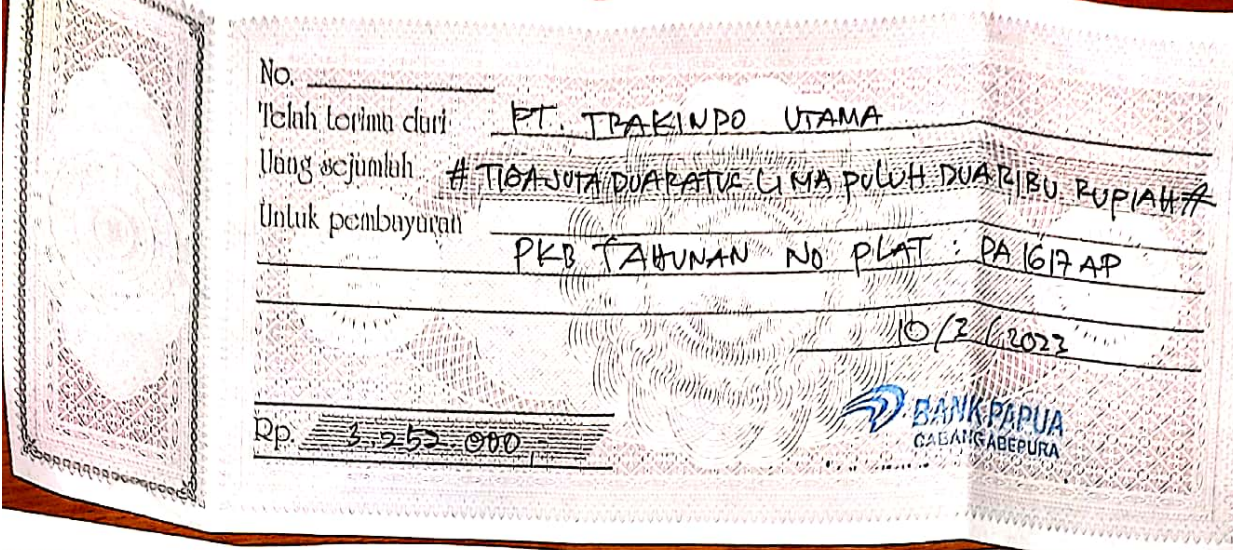 No.
Telah terima dari PT. TRAKINDO UTAMA
Uang sejumlah # TIGA JUTA DUA RATUS LIMA PULUH DUA RIBU RUPIAH #
Untuk pembayaran
PKB TAHUNAN NO PLAT : PA 1617 AP
10/3/2023
BANK PAPUA
CABANG ABEPURA
Rp. 3.252.000,-